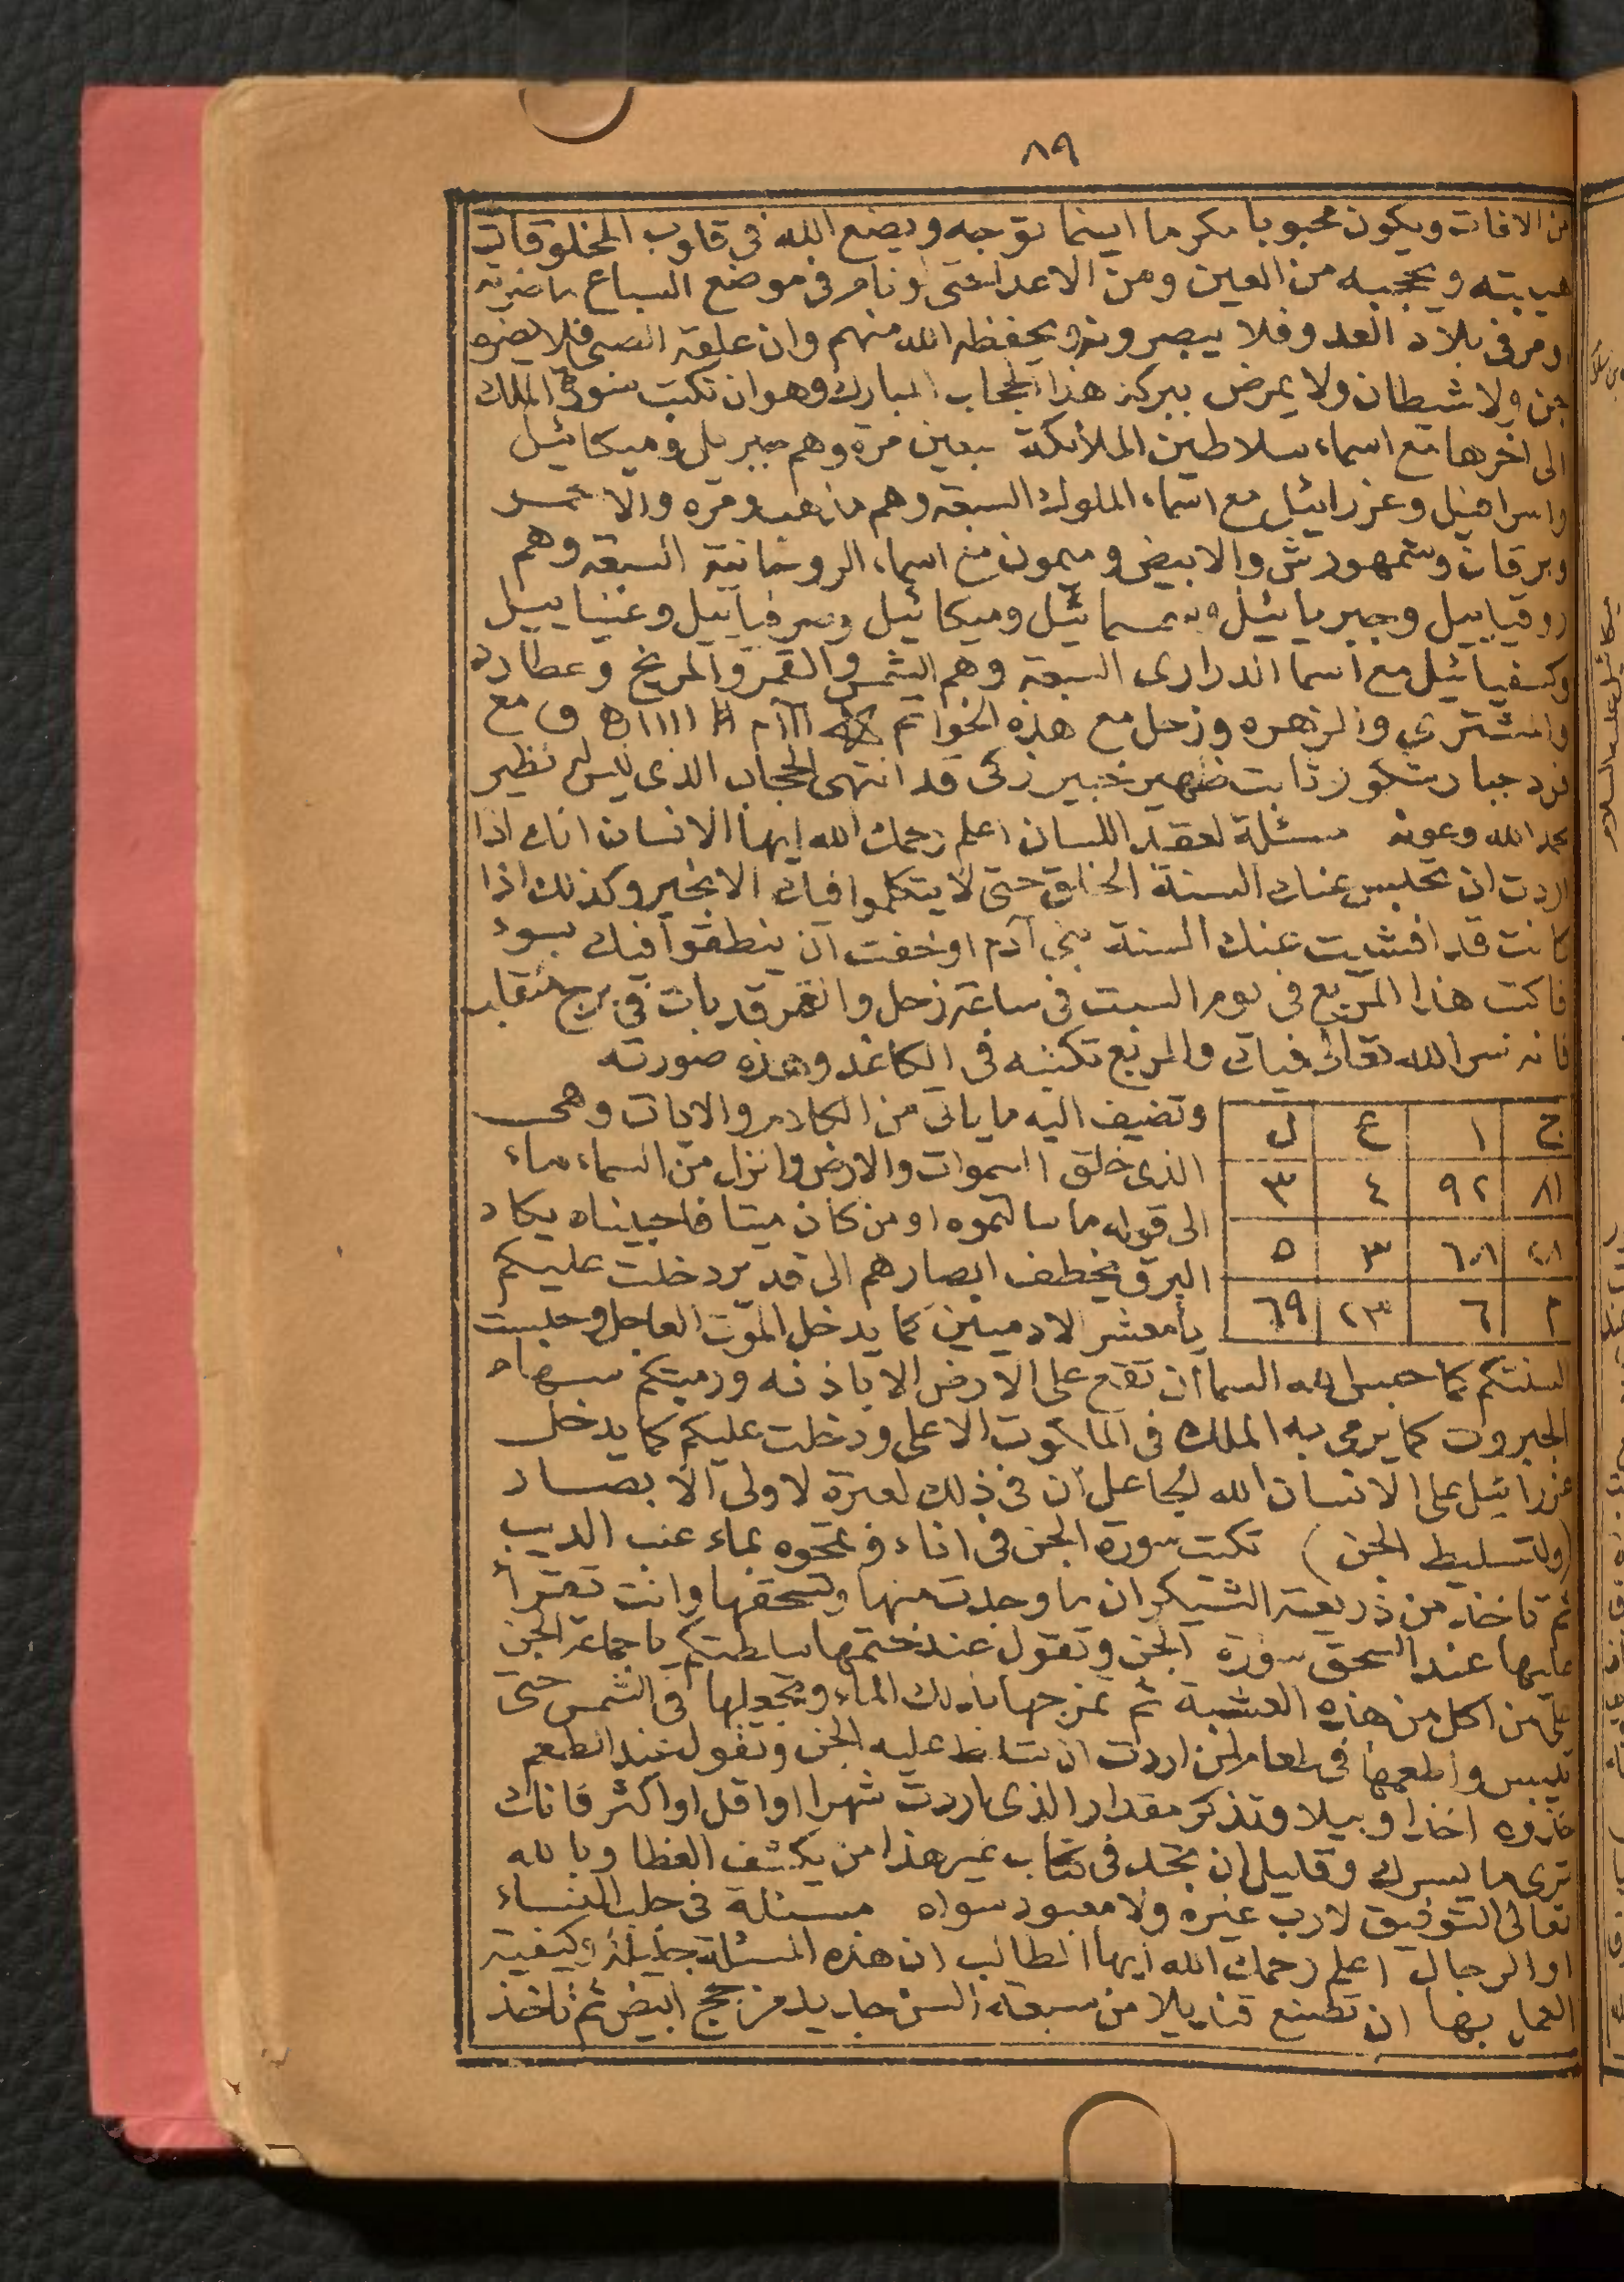 ٨٩
من الافات ويكون محبوبا مكرما اينما توجه ويضع الله فى قلوب المخلوقات
هيبته ويحجبه من العين ومن الاعدا حتى لو نام فى موضع السباع ما ضرته
او مر فى بلاد العدو فلا يبصرونه ويحفظه الله منهم وان علقه الصبى فلا يضره
جن ولا شيطان ولا يمرض ببركة هذا الحجاب المبارك وهو ان تكتب سورة الملك
الى اخرها مع اسماء سلاطين الملائكة سبعين مرة وهم جبريل وميكائيل
واسرافيل وعزرائيل مع اسماء الملوك السبعة وهم مذهب ومره والاحمر
وبرقان وشمهورش والابيض وميمون مع اسماء الروحانية السبعة وهم
روقياييل وجبريائيل وسمسمائيل وميكائيل وصرفياييل وعنياييل
وكسفيائيل مع اسما الدرارى السبعة وهم الشمس والقمر والمريخ وعطارد
والمشترى والزهره وزحل مع هذه الخواتم ااا م # اااا ه و مع
فرد جبار شكور ثابت ظهير خبير زكى قد انتهى الحجاب الذى ليس له نظير
بحمد الله وعونه مسئلة لعقد اللسان اعلم رحمك الله ايها الانسان انك اذا
اردت ان تحبس عنك السنة الخلق حتى لا يتكلموا فيك الا بخير وكذلك اذا
كانت قد افشيت عنك السنة بنى آدم او خفت ان ينطقوا فيك بسوء
فاكتب هذا المربع فى يوم السبت فى ساعة زحل والقمر قد بات فى برج منقلب
فانه سر الله تعالى فيك والمربع تكتبه فى الكاغد وهذه صورته
وتضيف اليه ما ياتى من الكلام والايات وهى
الذى خلق السموات والارض وانزل من السماء ماء
الى قوله ما سالتموه او من كان ميتا فاحييناه يكاد
البرق يخطف ابصارهم الى قدير دخلت عليكم
يا معشر الادميين كما يدخل الموت العاجل وحبست
ج ا ع ل
٨١ ٩٢ ٤ ٣
٦٠١ ٣ ٥
٢ ٦ ٢٣ ٦٩
السنتكم كما حبس الله السما ان تقع على الارض الا باذنه ورميتكم بسهام
الجبروت كما يرمى به الملك فى الملكوت الاعلى ودخلت عليكم كما يدخل
عزرائيل على الانسان الله لجاعل ان فى ذلك لعبرة لاولى الابصار
(ولتسليط الجن) تكتب سورة الجن فى اناء وتمحوه بماء عنب الديب
ثم تاخذ من ذريعة الشيكران ما وجدت منها وتسحقها وانت تقرأ
عليها عند السحق سورة الجن وتقول عند ختمها سلطتكم يا جماعة الجن
على من اكل من هذه العشبة ثم تمزجها بذلك الماء وتجعلها فى الشمس حتى
تيبس واطعمها فى طعام لمن اردت ان تسلط عليه الجن وتقول عند الطعم
خذوه اخذا وبيلا وتذكر مقدار الذى اردت شهرا او اقل او اكثر فانك
ترى ما يسرك وقليل ان تجد فى كتاب غير هذا من يكشف الغطا وبالله
تعالى التوفيق لا رب غيره ولا معبود سواه مسئلة فى جلب النساء
او الرجال اعلم رحمك الله ايها الطالب ان هذه المسئلة جليلة وكيفية
العمل بها ان تصنع قنديلا من سبعة السن جديد من حجج ابيض ثم تاخذ